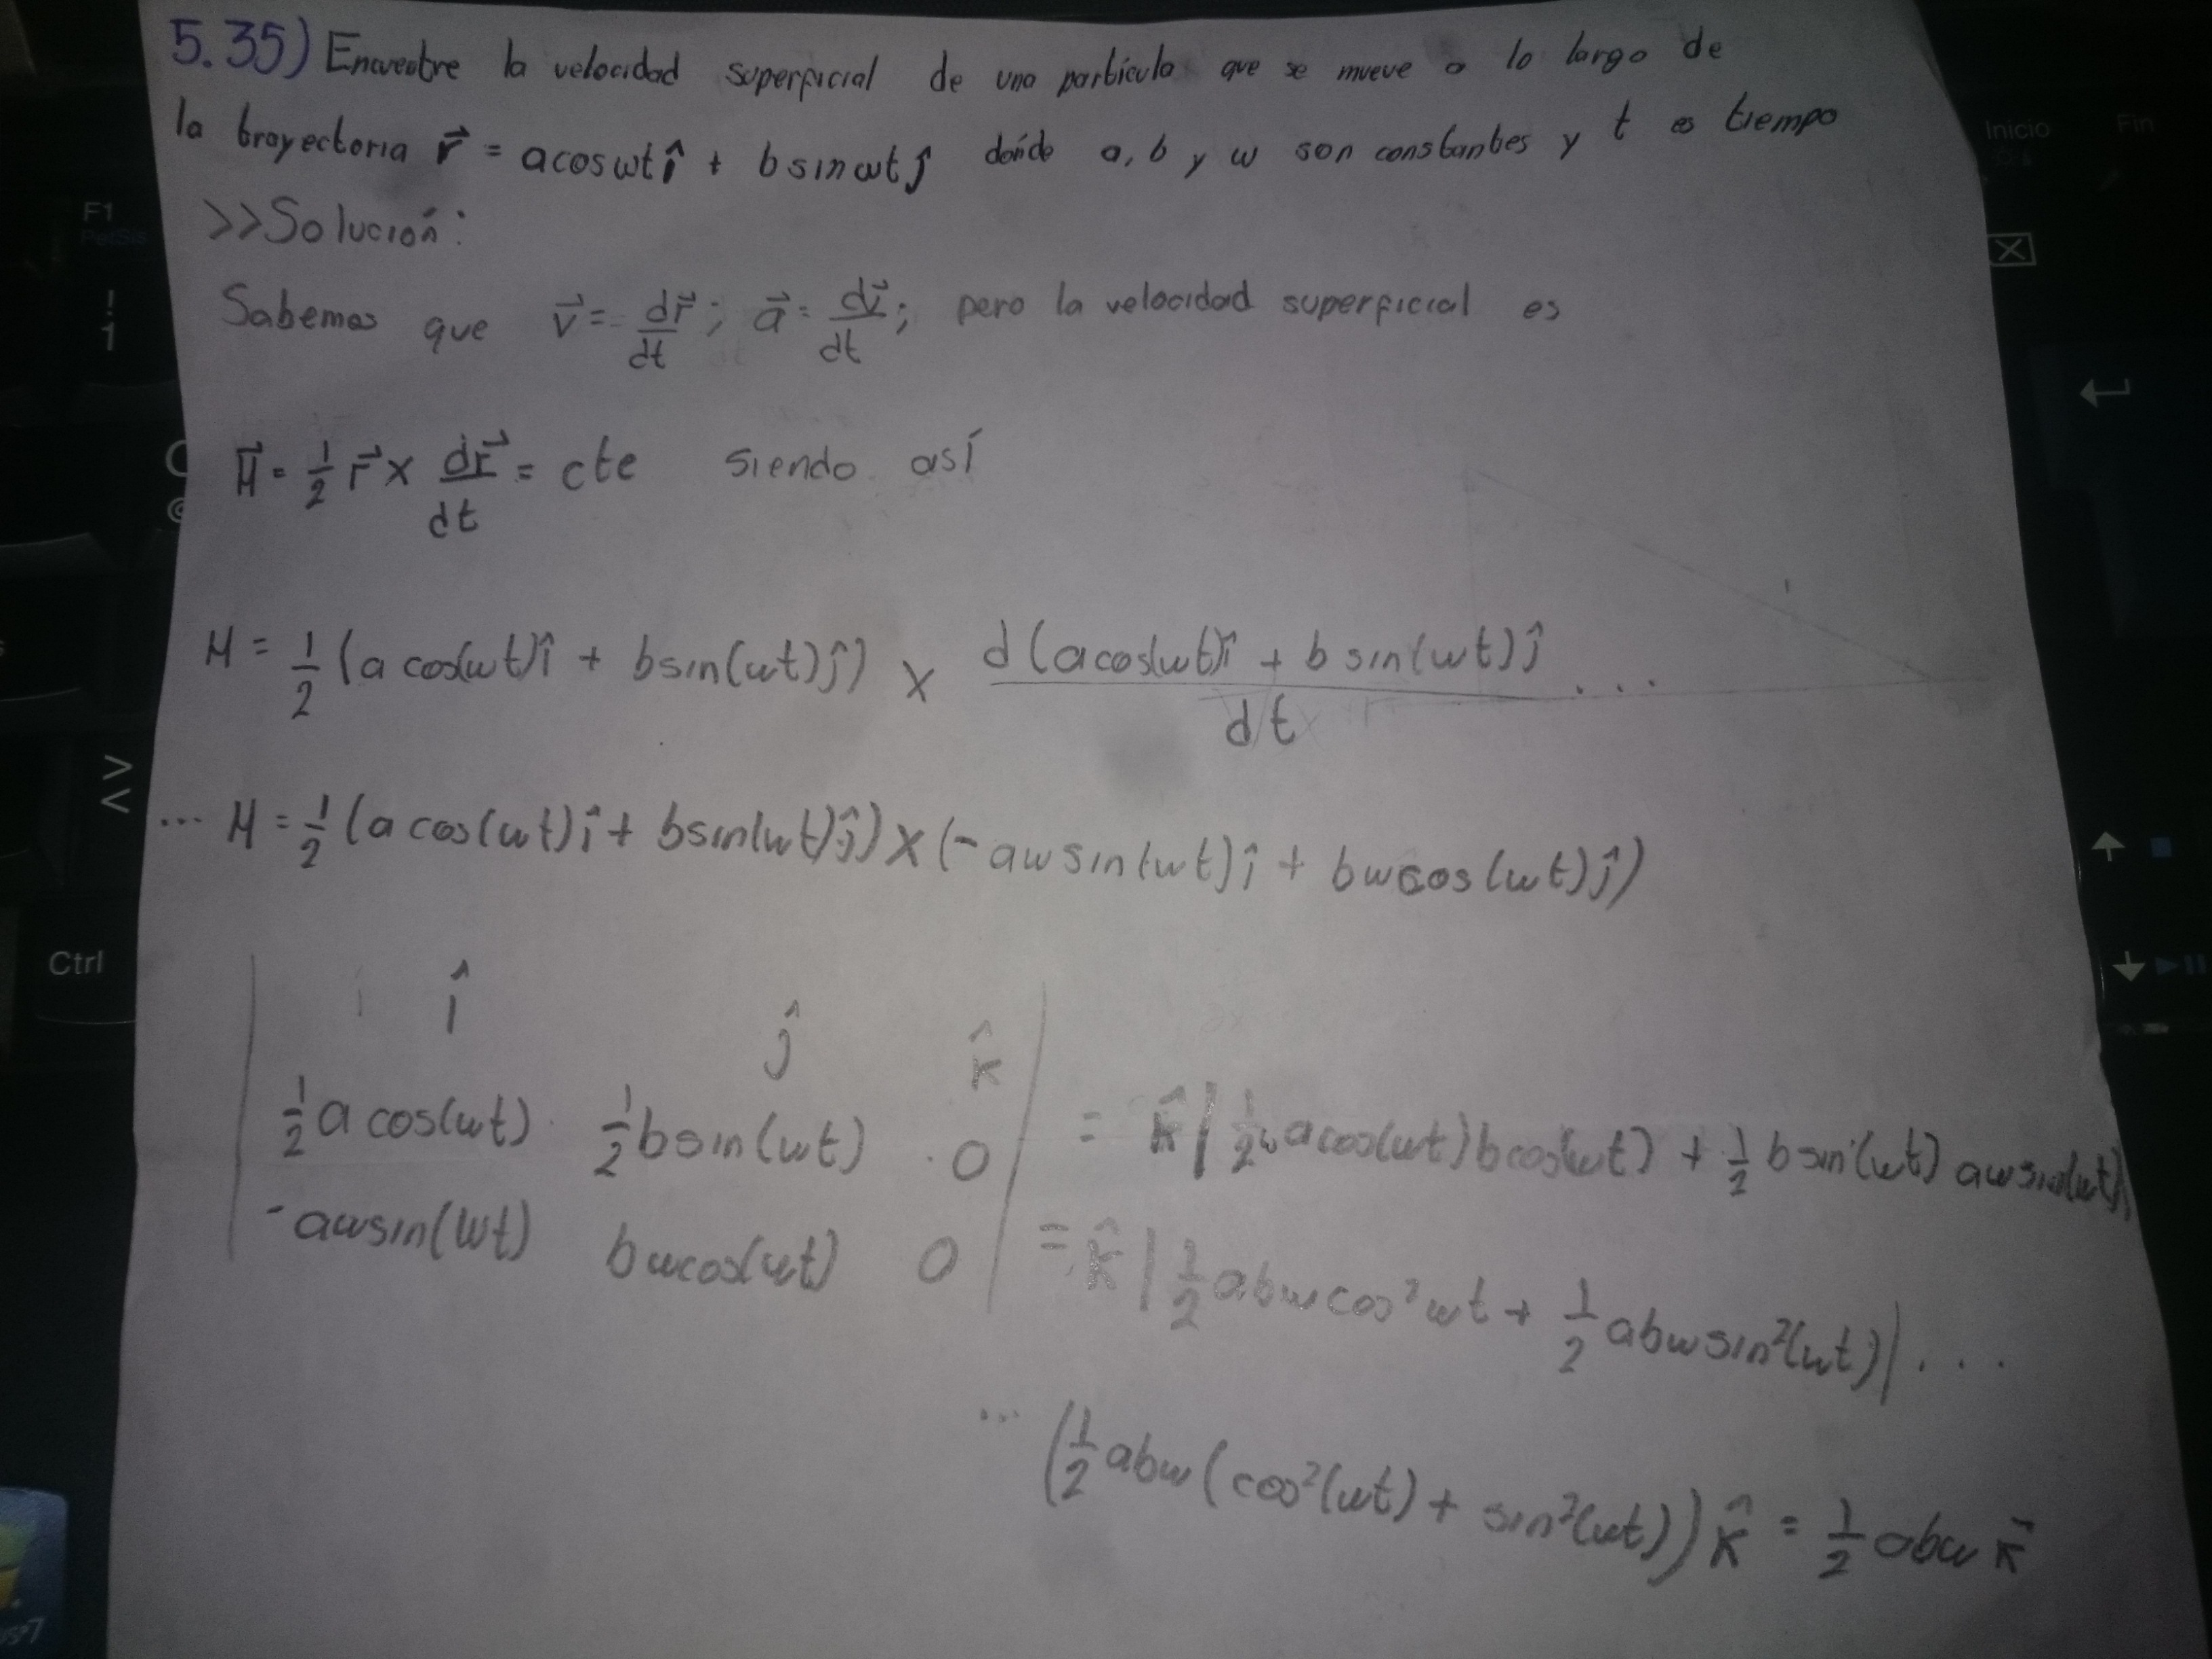 5.35) Encuentre la velocidad superficial de una partícula que se mueve a lo largo de
la trayectoria r⃗ = acoswt î + bsinwt ĵ dónde a, b y w son constantes y t es tiempo
>>Solución:
Sabemos que v⃗ = dr⃗/dt; a⃗ = dv⃗/dt; pero la velocidad superficial es
H⃗ = 1/2 r⃗ x dr⃗/dt = cte siendo así
H = 1/2 (a cos(wt)î + bsin(wt)ĵ) x d(acos(wt)î + b sin(wt)ĵ/dt ...
... H = 1/2 (a cos(wt)î + bsin(wt)ĵ) x (- awsin(wt)î + bwcos(wt)ĵ)
| î ĵ k̂ |
| 1/2 a cos(wt) 1/2 bsin(wt) 0 | = k̂ | 1/2 w acos(wt) bcos(wt) + 1/2 b sin(wt) awsin(wt) |
| -awsin(wt) bwcos(wt) 0 | = k̂ | 1/2 abwcos²wt + 1/2 abwsin²(wt) | ...
... (1/2 abw (cos²(wt) + sin²(wt)) k̂ = 1/2 abw k̂
Inicio
Fin
F1
!
1
Ctrl
>
<